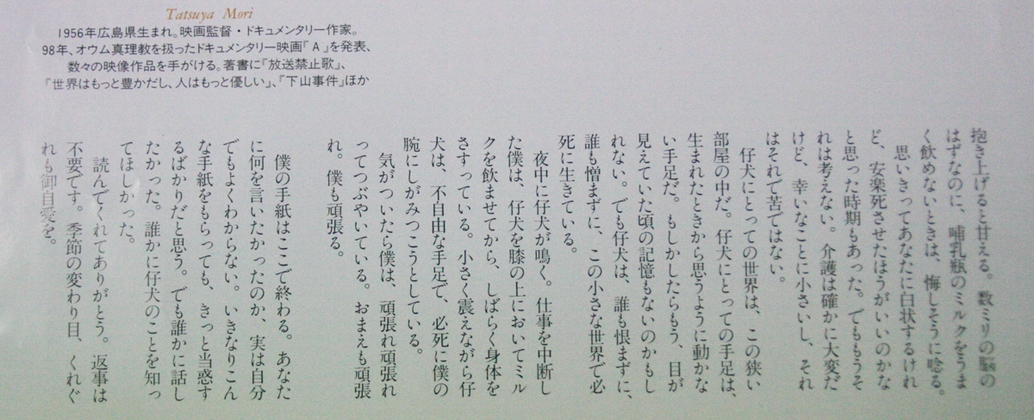 Tatsuya Mori
1956年広島県生まれ。映画監督・ドキュメンタリー作家。
98年、オウム真理教を扱ったドキュメンタリー映画「A」を発表、
数々の映像作品を手がける。著書に『放送禁止歌』、
『世界はもっと豊かだし、人はもっと優しい』、『下山事件』ほか
抱き上げると甘える。数ミリの脳の
はずなのに、哺乳瓶のミルクをうま
く飲めないときは、悔しそうに唸る。
思いきってあなたに白状するけれ
ど、安楽死させたほうがいいのかな
と思った時期もあった。でももうそ
れは考えない。介護は確かに大変だ
けど、幸いなことに小さいし、それ
はそれで苦ではない。
仔犬にとっての世界は、この狭い
部屋の中だ。仔犬にとっての手足は、
生まれたときから思うように動かな
い手足だ。もしかしたらもう、目が
見えていた頃の記憶もないのかもし
れない。でも仔犬は、誰も恨まずに、
誰も憎まずに、この小さな世界で必
死に生きている。
夜中に仔犬が鳴く。仕事を中断し
た僕は、仔犬を膝の上においてミル
クを飲ませてから、しばらく身体を
さすっている。小さく震えながら仔
犬は、不自由な手足で、必死に僕の
腕にしがみつこうとしている。
気がついたら僕は、頑張れ頑張れ
ってつぶやいている。おまえも頑張
れ。僕も頑張る。
僕の手紙はここで終わる。あなた
に何を言いたかったのか、実は自分
でもよくわからない。いきなりこん
な手紙をもらっても、きっと当惑す
るばかりだと思う。でも誰かに話し
たかった。誰かに仔犬のことを知っ
てほしかった。
読んでくれてありがとう。返事は
不要です。季節の変わり目、くれぐ
れも御自愛を。